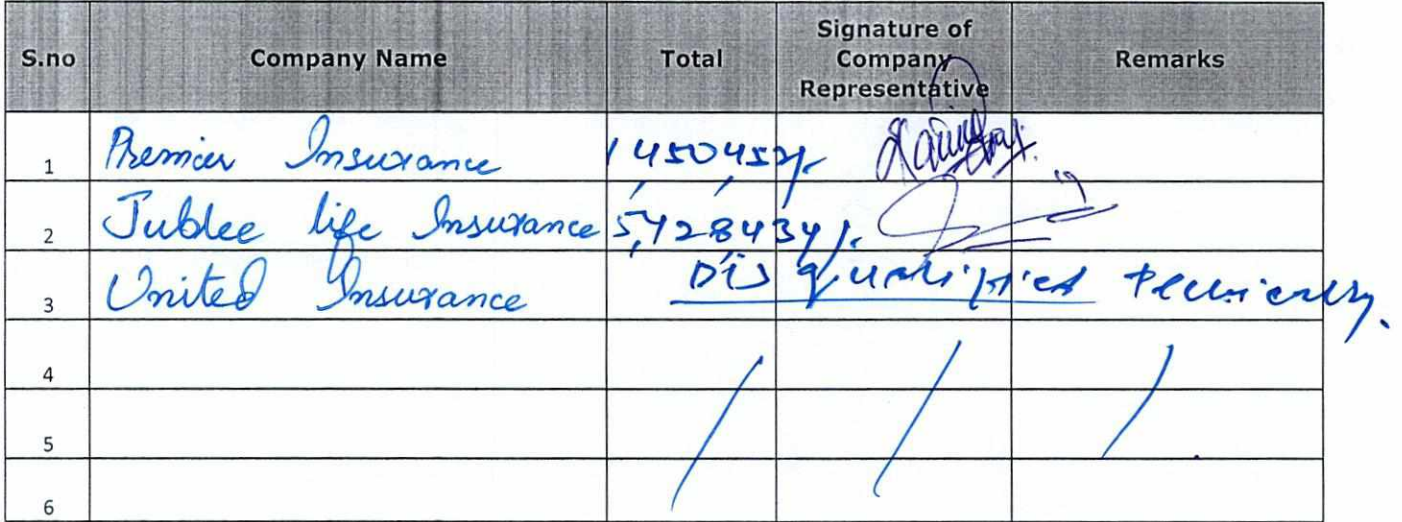 S.no Company Name Total Signature of Company Representative Remarks
1 Premier Insurance 1,450,452/-
2 Jublee life Insurance 5,428,434/-
3 United Insurance Disqualified Technically.
4
5
6